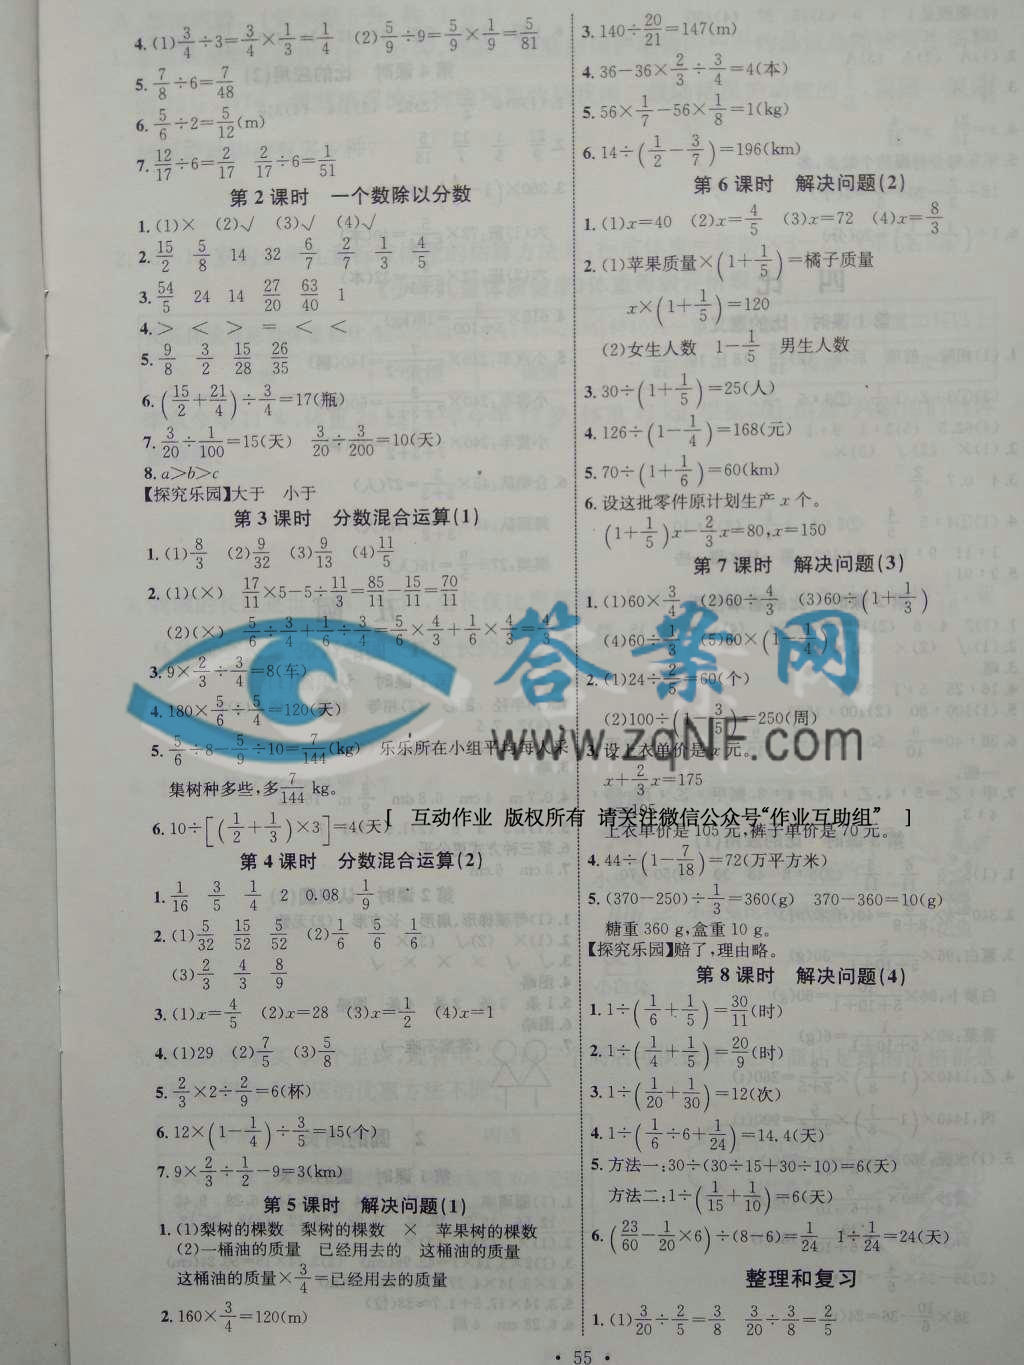 4.(1)3/4÷3=3/4×1/3=1/4 (2)5/9÷9=5/9×1/9=5/81
5. 7/8÷6=7/48
6. 5/6÷2=5/12(m)
7. 12/17÷6=2/17 2/17÷6=1/51
第2课时 一个数除以分数
1.(1)× (2)√ (3)√ (4)√
2. 15/2 5/8 14 32 6/7 2/7 1/3 4/5
3. 54/5 24 14 27/20 63/40 1
4.> < > = < <
5. 9/8 3/2 15/28 26/35
6.(15/2+21/4)÷3/4=17(瓶)
7. 3/20÷1/100=15(天) 3/20÷3/200=10(天)
8. a>b>c
【探究乐园】大于 小于
第3课时 分数混合运算(1)
1.(1)8/3 (2)9/32 (3)9/13 (4)11/5
2.(1)(×) 17/11×5-5÷11/3=85/11-15/11=70/11
(2)(×) 5/6÷3/4+1/6÷3/4=5/6×4/3+1/6×4/3=4/3
3. 9×2/3÷3/4=8(车)
4. 180×5/6÷5/4=120(天)
5. 5/6÷8-5/9÷10=7/144(kg) 乐乐所在小组平均每人采
集树种多些,多7/144 kg。
6. 10÷[(1/2+1/3)×3]=4(天)
第4课时 分数混合运算(2)
1. 1/16 3/5 1/4 2 0.08 1/9
2.(1)5/32 15/52 5/52 (2)1/6 5/6 1/6
(3)2/3 4/3 8/9
3.(1)x=4/5 (2)x=28 (3)x=1/2 (4)x=1
4.(1)29 (2)7/5 (3)5/8
5. 2/3×2÷2/9=6(杯)
6. 12×(1-1/4)÷3/5=15(个)
7. 9×2/3÷1/2-9=3(km)
第5课时 解决问题(1)
1.(1)梨树的棵数 梨树的棵数 × 苹果树的棵数
(2)一桶油的质量 已经用去的 这桶油的质量
这桶油的质量×3/4=已经用去的质量
2. 160×3/4=120(m)
3. 140÷20/21=147(m)
4. 36-36×2/3÷3/4=4(本)
5. 56×1/7-56×1/8=1(kg)
6. 14÷(1/2-3/7)=196(km)
第6课时 解决问题(2)
1.(1)x=40 (2)x=4/5 (3)x=72 (4)x=8/3
2.(1)苹果质量×(1+1/5)=橘子质量
x×(1+1/5)=120
(2)女生人数 1-1/5 男生人数
3. 30÷(1+1/5)=25(人)
4. 126÷(1-1/4)=168(元)
5. 70÷(1+1/6)=60(km)
6. 设这批零件原计划生产x个。
(1+1/5)x-2/3x=80,x=150
第7课时 解决问题(3)
1.(1)60×3/4 (2)60÷4/3 (3)60÷(1+1/3)
(4)60÷1/3 (5)60×(1-1/4)
2.(1)24÷2/5=60(个)
(2)100÷(1-3/5)=250(周)
3. 设上衣单价是x元。
x+2/3x=175
x=105
上衣单价是105元,裤子单价是70元。
4. 44÷(1-7/18)=72(万平方米)
5.(370-250)÷1/3=360(g) 370-360=10(g)
糖重360 g,盒重10 g。
【探究乐园】赔了,理由略。
第8课时 解决问题(4)
1. 1÷(1/6+1/5)=30/11(时)
2. 1÷(1/4+1/5)=20/9(时)
3. 1÷(1/20+1/30)=12(次)
4. 1÷(1/6÷6+1/24)=14.4(天)
5. 方法一:30÷(30÷15+30÷10)=6(天)
方法二:1÷(1/15+1/10)=6(天)
6.(23/60-1/20×6)÷(8-6)=1/24 1÷1/24=24(天)
整理和复习
1.(1)3/20÷2/5=3/8 3/20÷3/8=2/5
· 55 ·
答案网
www.zqNF.com
[ 互动作业 版权所有 请关注微信公众号“作业互助组” ]